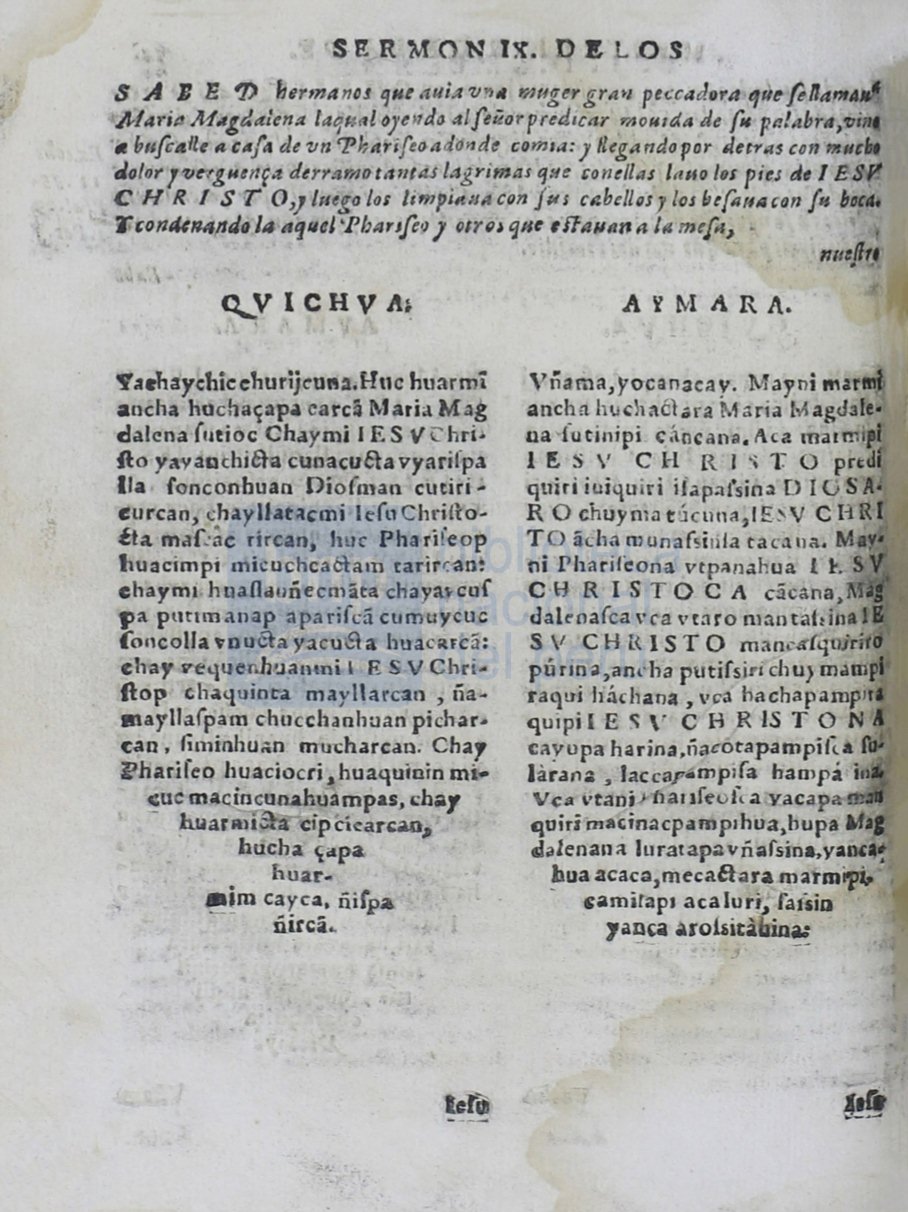 SERMON IX. DE LOS
SABED hermanos que auia vna muger gran peccadora que se llamaua
Maria Magdalena la qual oyendo al señor predicar mouida de su palabra, vino
a buscalle a casa de vn Phariseo adonde comia: y llegando por detras con mucho
dolor y verguença derramo tantas lagrimas que con ellas lauo los pies de IESV
CHRISTO, y luego los limpiaua con sus cabellos y los besaua con su boca.
Y condenandola aquel Phariseo y otros que estauan a la mesa,
nuestro
QVICHVA.
Yachaychic churijcuna. Huc huarmĩ
ancha huchaçapa carcã Maria Mag
dalena sutioc Chaymi IESV Chri-
sto yayanchicta cunacucta vyarispa
lla sonconhuan Diosman cutiri-
curcan, chayllatacmi Iesu Christo-
cta mascac rircan, huc Phariseop
huacimpi micuchcactam tarircan:
chaymi huasañecmãta chayarcus
pa putimanap apariscã cumuycuc
soncolla vnucta yacucta huacarcã:
chay vequenhuanmi IESV Chri-
stop chaquinta mayllarcan, ña-
mayllaspam chucchanhuan pichar-
can, siminhuan mucharcan. Chay
Phariseo huaciocri, huaquinin mi-
cuc macincunahuampas, chay
huarmicta cipcicarcan,
hucha çapa
huar-
mim cayca, ñispa
ñircã.
Iesu
AYMARA.
Vñama, yocanacay. Mayni marmi
ancha huchactara Maria Magdale-
na sutinipi cáncana. Aca marmipi
IESV CHRISTO predi
quiri iuiquiri isapassina DIOSA-
RO chuyma tácuna, IESV CHRI
TO ãcha munassinsa tacana. May-
ni Phariseona vtpanahua IESV
CHRISTOCA cãcana, Mag
dalenasca vca vtaro mantassina IE
SV CHRISTO mancasquirito
pûrina, ancha putissiri chuymampi
raqui háchana, vca hachapampira
quipi IESV CHRISTONA
cayupa harina, ñacotapampisca su-
làrana, laccapampisa hampá ina.
Vca vtani Phariseosca yacapa man
quiri macinacpampihua, hupa Mag
dalenana luratapa vñassina, yanca-
hua acaca, mecactara marmipi,
camisapi aca luri, sassin
yanca aroisitàhina:
Iesu